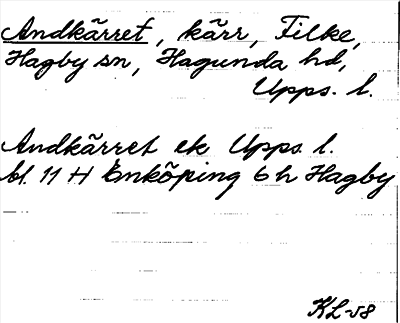 Andkärret, kärr, Filke,
Hagby sn, Hagunda hd,
Upps. l.
Andkärret ek Upps. l.
bl. 11 H Enköping 6 h Hagby
KL-58